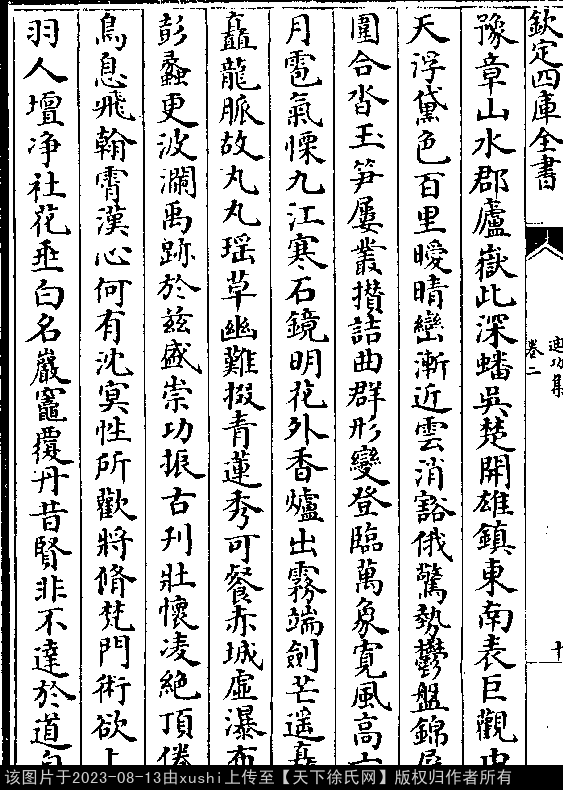 欽定四庫全書
迪功集
卷二
十
豫章山水郡廬嶽此深蟠吳楚開雄鎮東南表巨觀中
天浮黛色百里曖晴巒漸近雲消豁俄驚勢鬱盤錦屏
圍合沓玉笋屢叢攢詰曲群形變登臨萬象寛風高六
月雹氣慄九江寒石鏡明花外香爐出霧端劍芒遥矗
矗龍脈故丸丸瑶草幽難掇青蓮秀可餐赤城虛瀑布
彭蠡更波瀾禹跡於兹盛崇功振古刋壯懷凌絶頂倦
鳥息飛翰霄漢心何有沈冥性所歡將脩梵門術欲上
羽人壇净社花垂白名巖竈覆丹昔賢非不達於道自
该图片于2023-08-13由xushi上传至【天下徐氏网】版权归作者所有